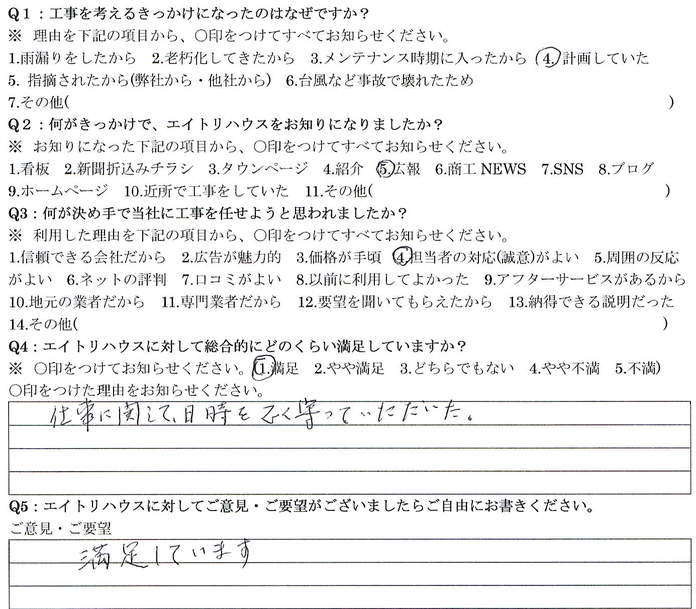 Q1：工事を考えるきっかけになったのはなぜですか？
※ 理由を下記の項目から、〇印をつけてすべてお知らせください。
1.雨漏りをしたから 2.老朽化してきたから 3.メンテナンス時期に入ったから 4.計画していた
5. 指摘されたから(弊社から・他社から) 6.台風など事故で壊れたため
7.その他( )
Q2：何がきっかけで、エイトリハウスをお知りになりましたか？
※ お知りになった下記の項目から、〇印をつけてすべてお知らせください。
1.看板 2.新聞折込みチラシ 3.タウンページ 4.紹介 5.広報 6.商工 NEWS 7.SNS 8.ブログ
9.ホームページ 10.近所で工事をしていた 11.その他( )
Q3：何が決め手で当社に工事を任せようと思われましたか？
※ 利用した理由を下記の項目から、〇印をつけてすべてお知らせください。
1.信頼できる会社だから 2.広告が魅力的 3.価格が手頃 4.担当者の対応(誠意)がよい 5.周囲の反応
がよい 6.ネットの評判 7.口コミがよい 8.以前に利用してよかった 9.アフターサービスがあるから
10.地元の業者だから 11.専門業者だから 12.要望を聞いてもらえたから 13.納得できる説明だった
14.その他( )
Q4：エイトリハウスに対して総合的にどのくらい満足していますか？
※ 〇印をつけてお知らせください。(1.満足 2.やや満足 3.どちらでもない 4.やや不満 5.不満)
〇印をつけた理由をお知らせください。
仕事に関して、日時を良く守っていただいた。
Q5：エイトリハウスに対してご意見・ご要望がございましたらご自由にお書きください。
ご意見・ご要望
満足しています